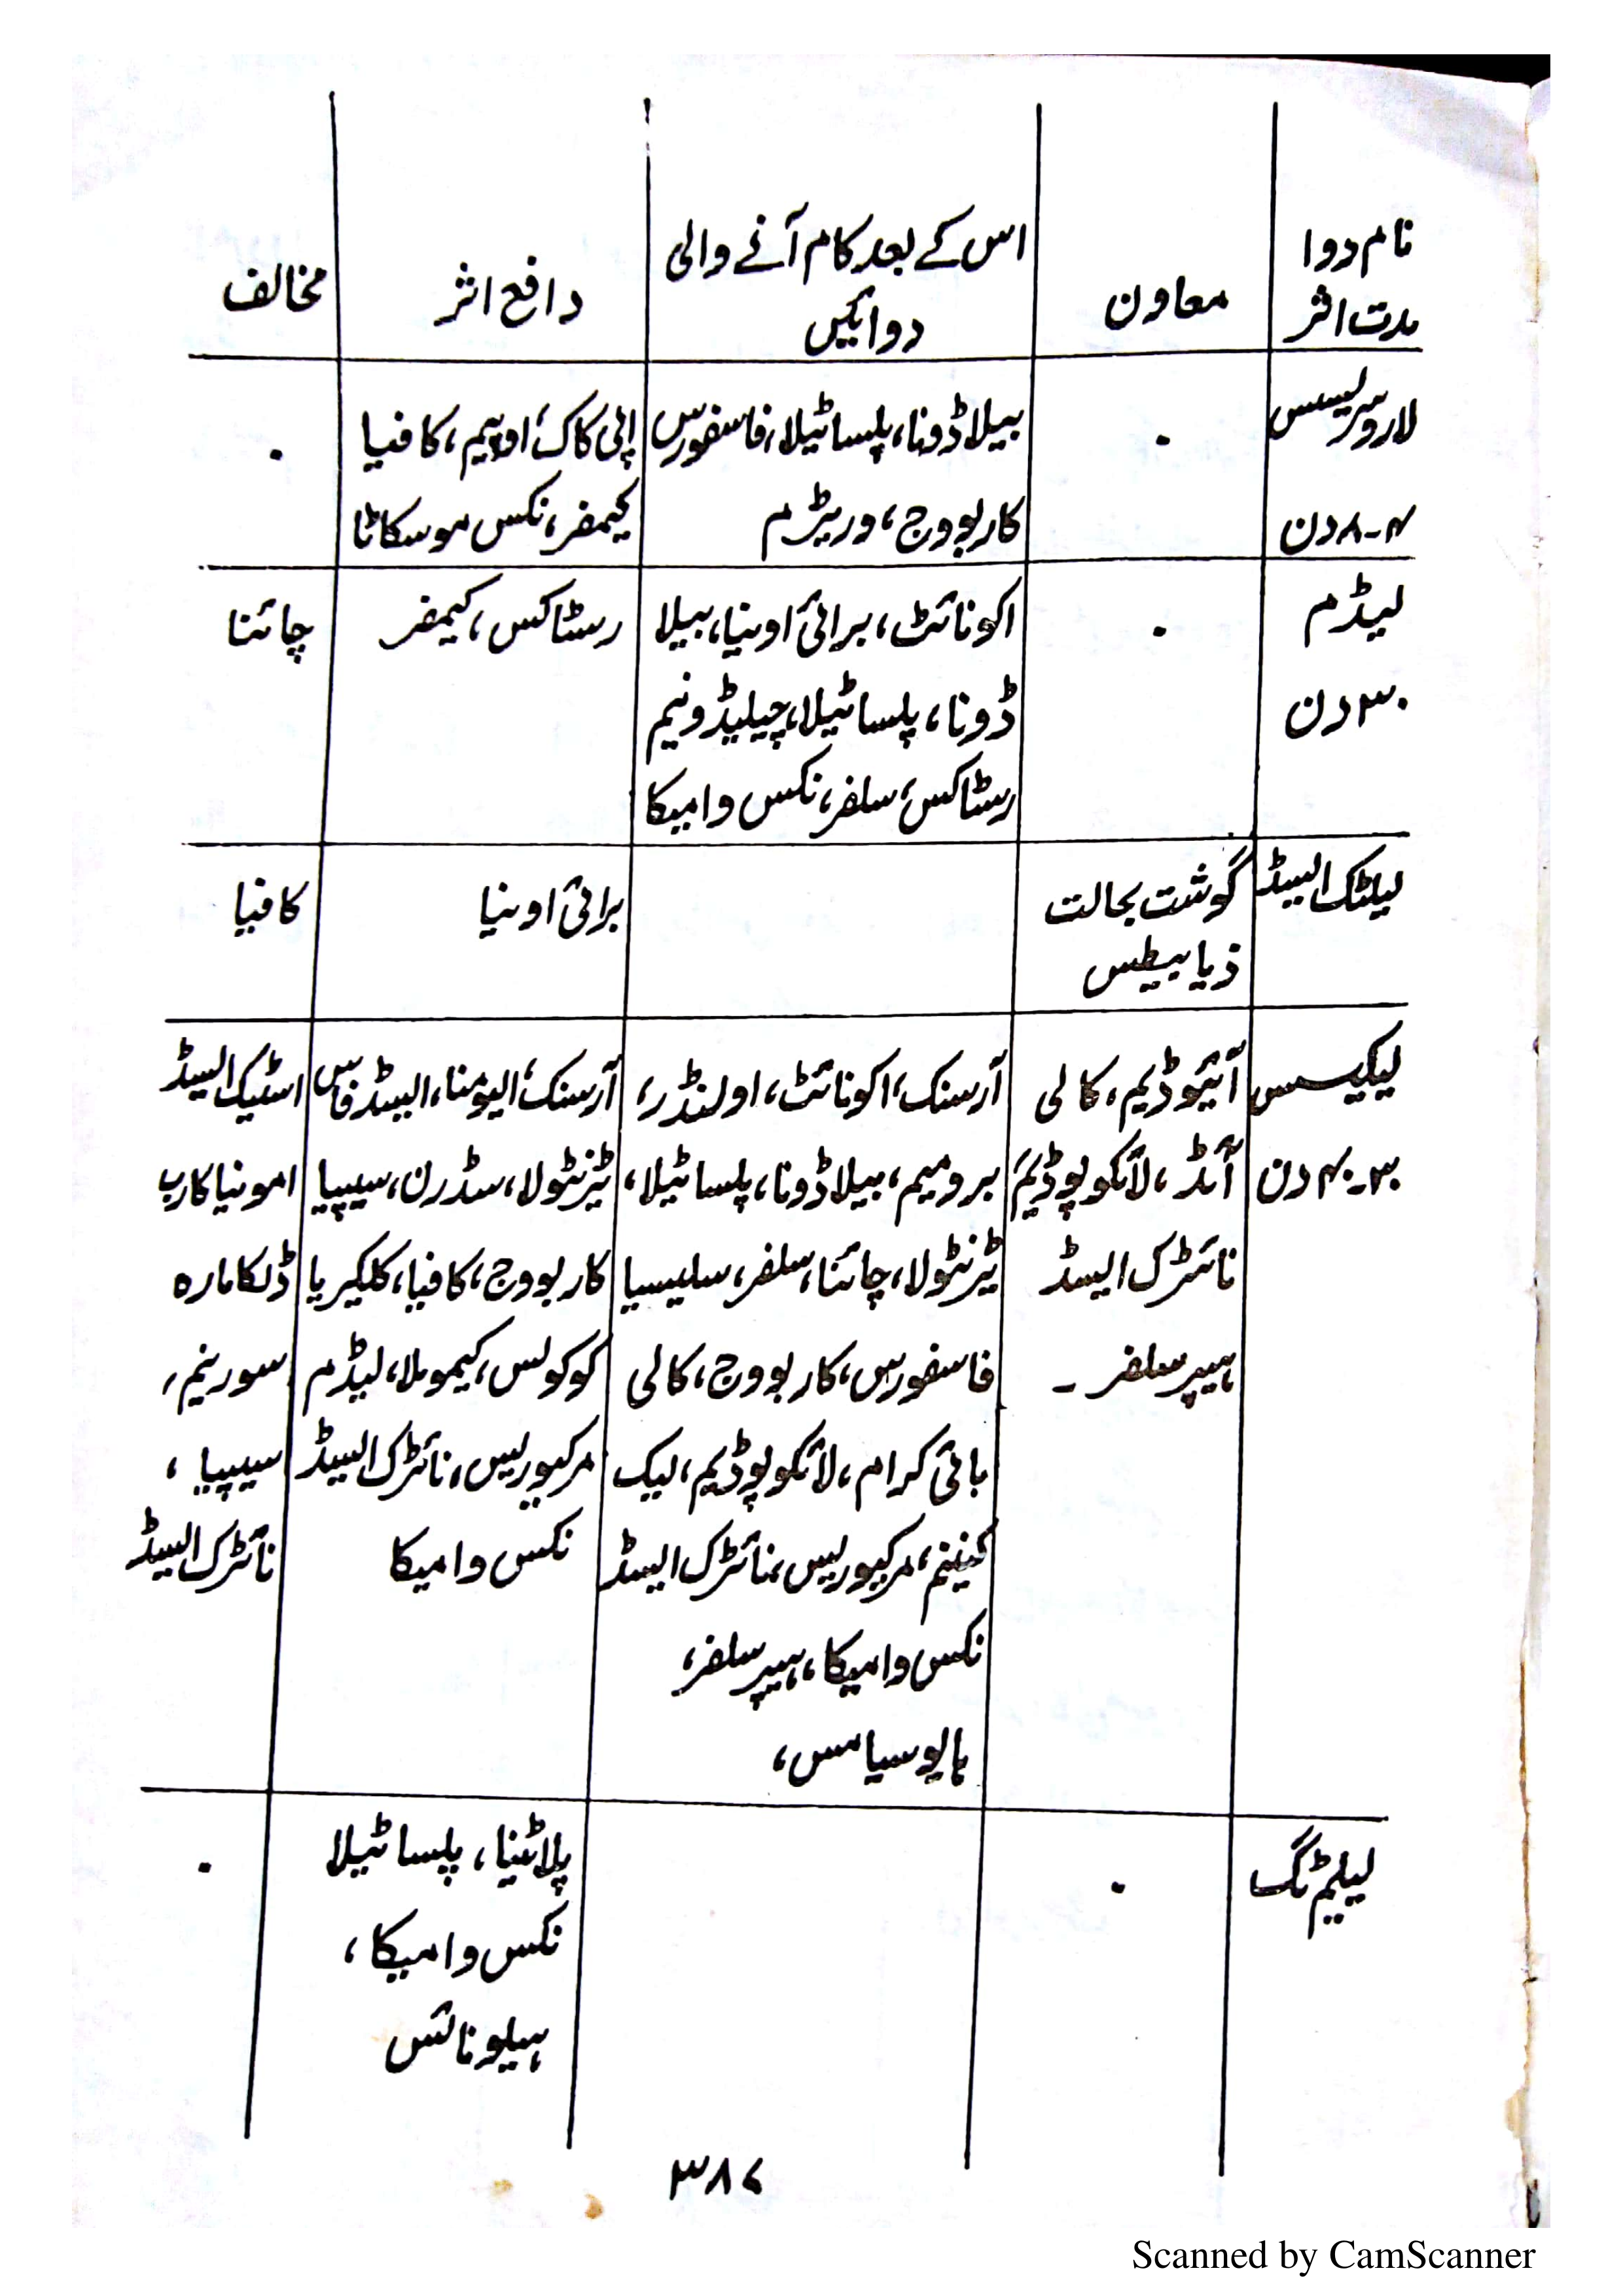 نام دوا
مدت اثر
معاون
اس کے بعد کام آنے والی
دوائیں
دافع اثر
مخالف
لاروسریسس
۴-۸ دن
.
بیلاڈونا، پلساٹیلا، فاسفورس
کاربووج، وریٹرم
اپی کاک، اوپیم، کافیا
کیمفر، نکس موسکاٹا
.
لیڈم
۳۰ دن
.
اکونائٹ، برائی اونیا، بیلا
ڈونا، پلساٹیلا، چیلیڈونیم
رسٹاکس، سلفر، نکس وامیکا
رسٹاکس، کیمفر
چائنا
لیکٹک ایسڈ
گوشت بحالت
ذیابیطس
برائی اونیا
کافیا
لیکیسس
۳۰-۴۰ دن
آئیوڈیم، کالی
آئڈ، لائکوپوڈیم
نائٹرک ایسڈ
ہیپر سلفر ۔
آرسنک، اکونائٹ، اولنڈر،
برومیم، بیلاڈونا، پلساٹیلا،
ٹرنٹولا، چائنا، سلفر، سلیسیا
فاسفورس، کاربووج، کالی
بائی کرام، لائکوپوڈیم، لیک
کینینم، مرکیوریس، نائٹرک ایسڈ
نکس وامیکا، ہیپر سلفر،
ہایوسیامس،
آرسنک، الیومنا، ایسڈ فاس
ٹرنٹولا، سڈرن، سیپیا
کاربووج، کافیا، کلکیریا
کوکولس، کیموملا، لیڈم
مرکیوریس، نائٹرک ایسڈ
نکس وامیکا
اسٹیک ایسڈ
امونیا کارب
ڈلکامارہ
سورینم،
سیپیا،
نائٹرک ایسڈ
لیلیم ٹگ
.
پلاٹینا، پلساٹیلا
نکس وامیکا،
ہیلونائس
.
۳۸۷
Scanned by CamScanner